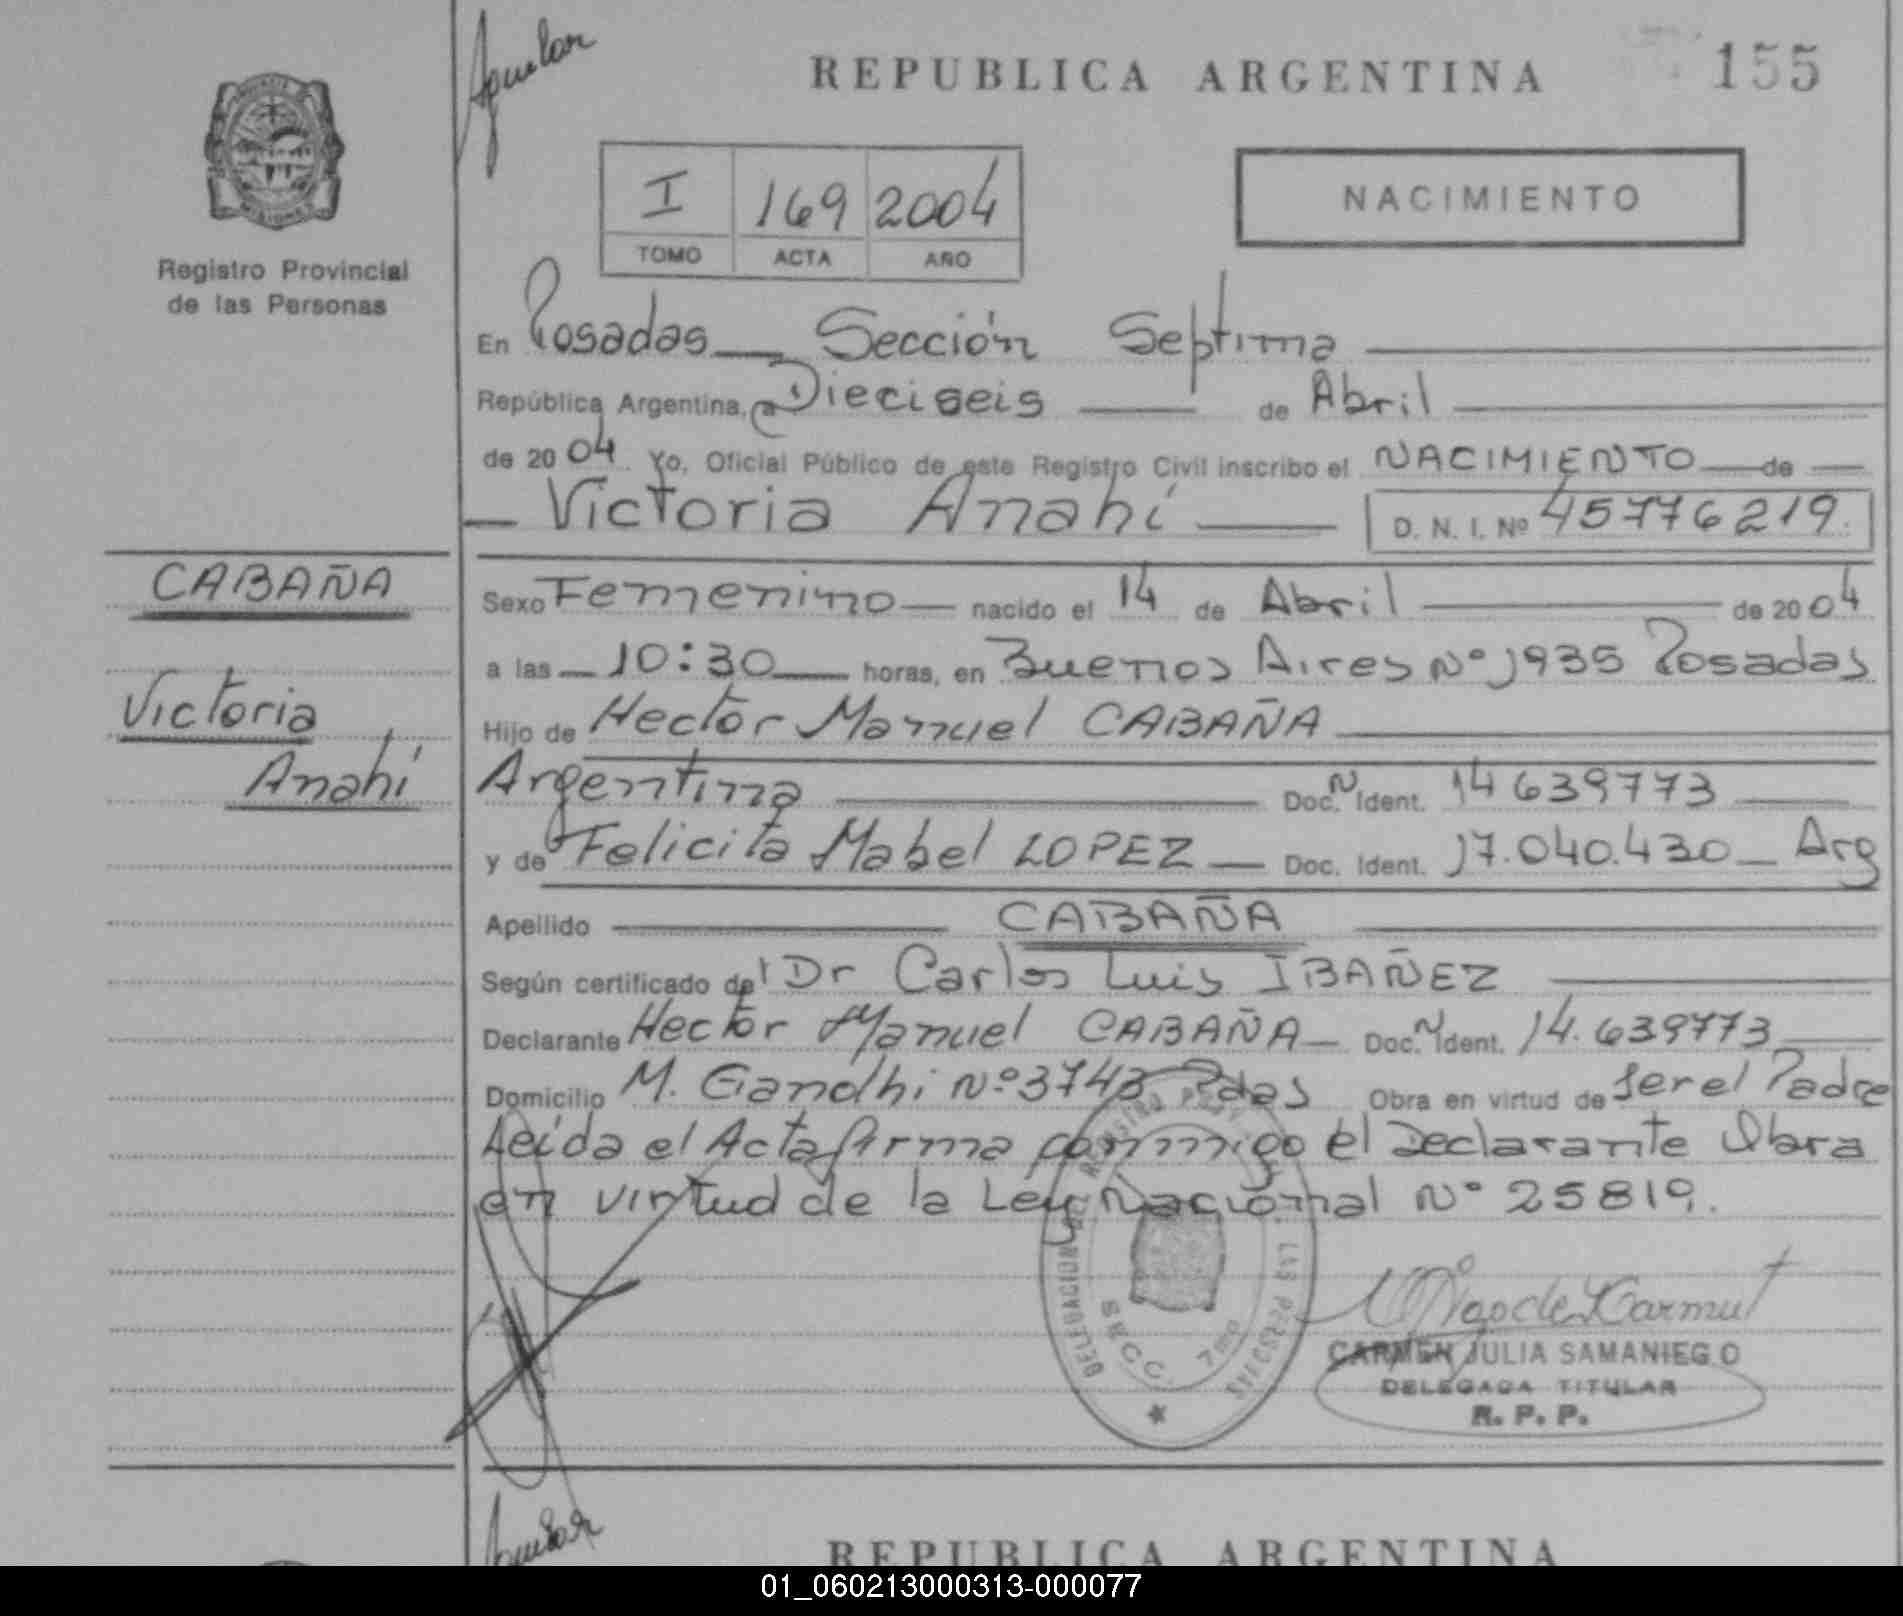 Aguilar
REPUBLICA ARGENTINA
155
I 169 2004
TOMO ACTA AÑO
NACIMIENTO
Registro Provincial
de las Personas
En Posadas Sección Septima
República Argentina, a Dieciseis de Abril
de 2004 Yo, Oficial Público de este Registro Civil inscribo el NACIMIENTO de
Victoria Anahí D. N. I. Nº 45776219.
CABAÑA
Victoria
Anahí
Sexo Femenino nacido el 14 de Abril de 2004
a las 10:30 horas, en Buenos Aires Nº 1935 Posadas
Hijo de Hector Manuel CABAÑA
Argentina Doc. N Ident. 14639773
y de Felicita Mabel LOPEZ Doc. Ident. 17.040.430 Arg
Apellido CABAÑA
Según certificado del Dr Carlos Luis IBAÑEZ
Declarante Hector Manuel CABAÑA Doc. N Ident. 14.639773
Domicilio M. Gandhi Nº 3743 Pdas Obra en virtud de ser el Padre
Leída el Acta firma conmigo el Declarante Obra
en virtud de la Ley Nacional Nº 25819.
DELEGACION DEL REGISTRO LAS PERSONAS
SECC. 7ma
CARMEN JULIA SAMANIEGO
DELEGADA TITULAR
R. P. P.
Aguilar
REPUBLICA ARGENTINA
01_060213000313-000077